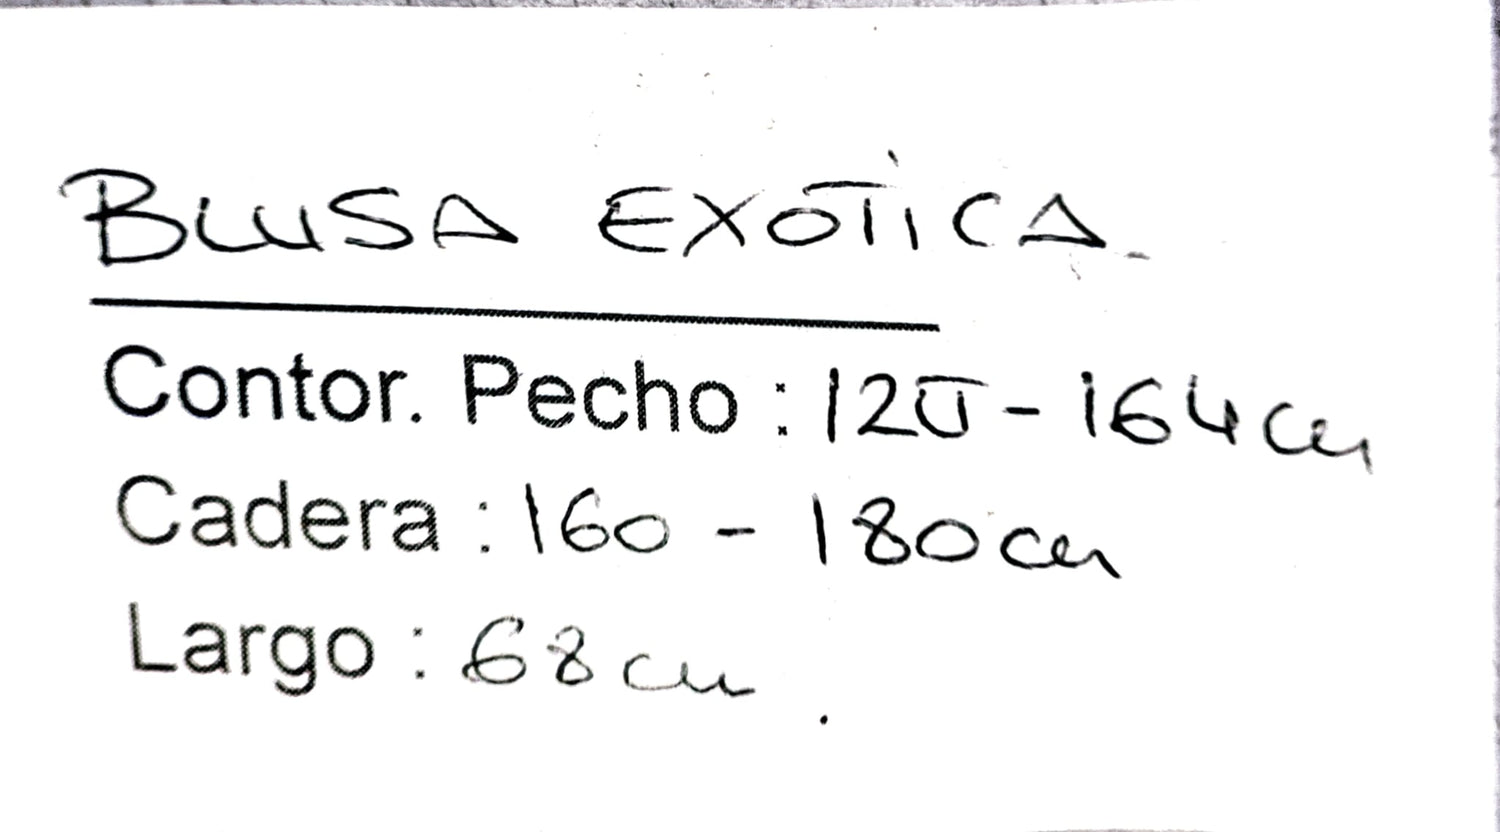 BLUSA EXÓTICA
Contor. Pecho : 120 - 164cm
Cadera : 160 - 180cm
Largo : 68cm